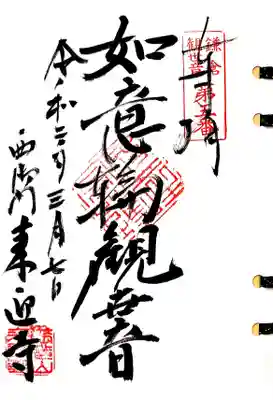 鎌倉
観世音
第五番
奉拝
如意輪観世音
令和三年三月七日
西御門 来迎寺